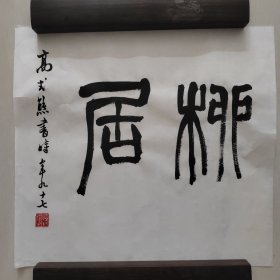 柳居
高式熊書時年九十七